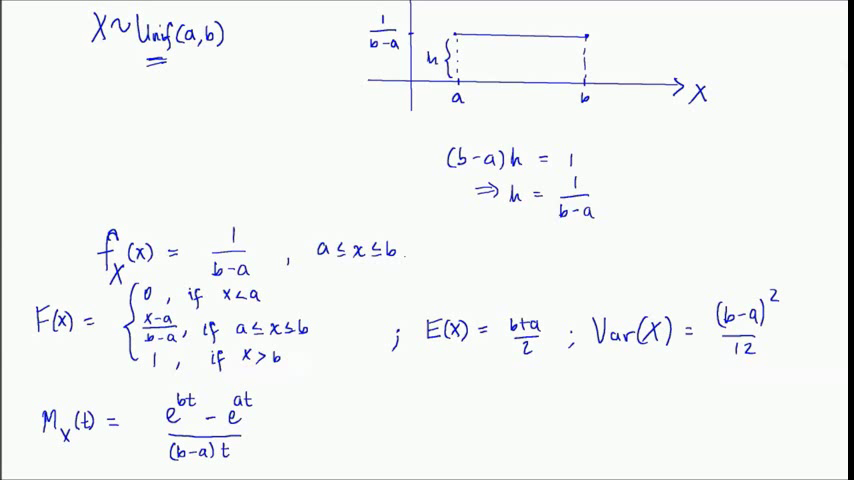 X ~ Unif(a,b)
1/(b-a)
h
a b X
(b-a)h = 1
⇒ h = 1/(b-a)
f_X(x) = 1/(b-a) , a ≤ x ≤ b.
F(x) = { 0 , if x < a
(x-a)/(b-a), if a ≤ x ≤ b
1 , if x > b
; E(X) = (b+a)/2 ; Var(X) = (b-a)^2/12
M_X(t) = (e^{bt} - e^{at})/((b-a)t)